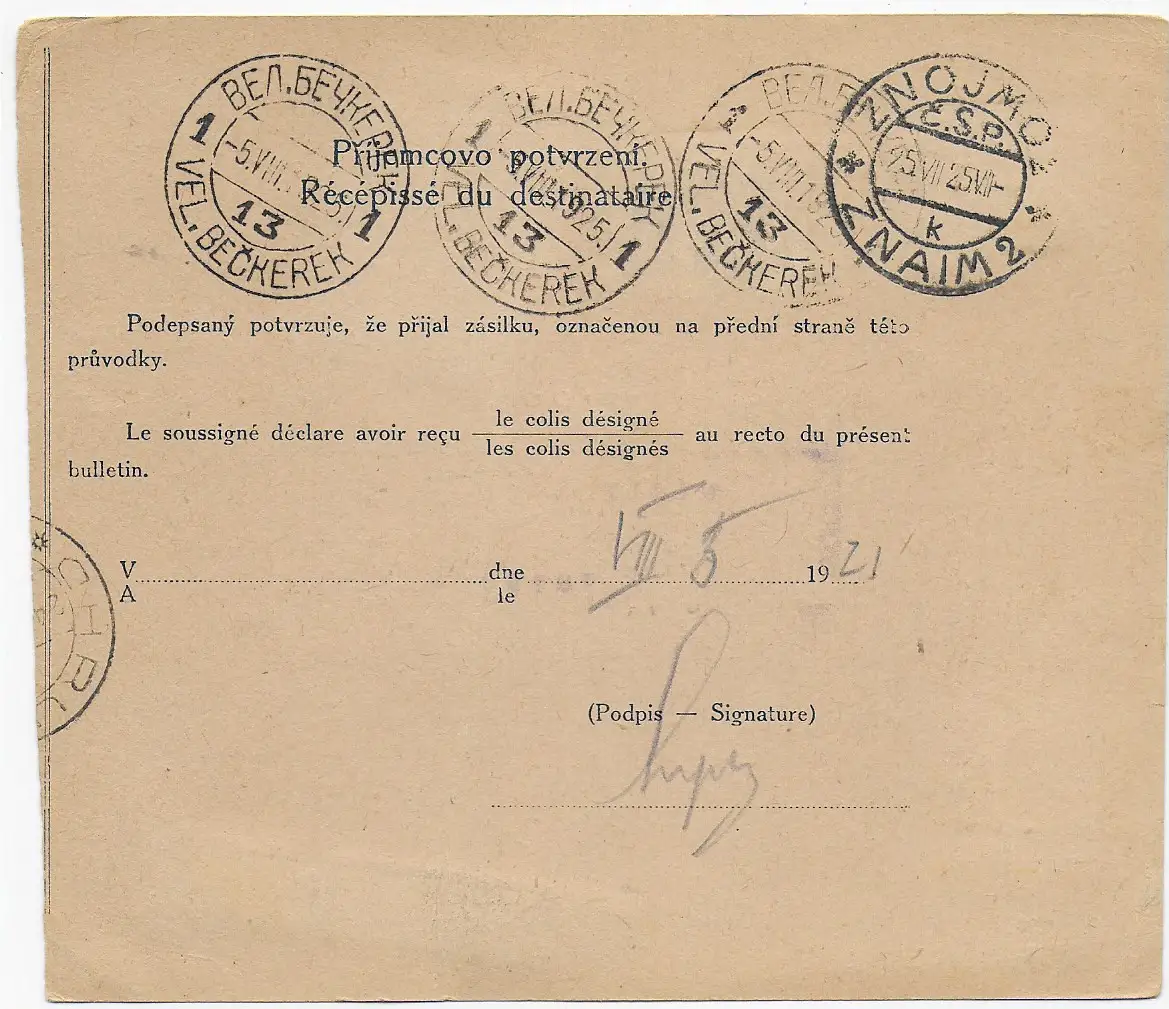 ВЕЛ.БЕЧКЕРЕК
1 -5.VIII.1925. 1
13
VEL. BEČKEREK
ВЕЛ.БЕЧКЕРЕК
1 -5.VIII.1925. 1
13
VEL. BEČKEREK
ВЕЛ.Б
1 -5.VIII.192
13
VEL. BEČKEREK
ZNOJMO 2
Č.S.P.
25.VII 25.VII-
k
ZNAIM 2
Příjemcovo potvrzení.
Récépissé du destinataire
Podepsaný potvrzuje, že přijal zásilku, označenou na přední straně této
průvodky.
Le soussigné déclare avoir reçu le colis désigné
les colis désignés au recto du présent
bulletin.
CHR
V dne VIII 5 19 21
A le
(Podpis — Signature)